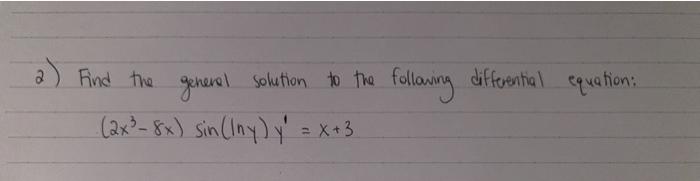 2) Find the general solution to the following differential equation:
(2x³ - 8x) sin(ln y) y' = x + 3